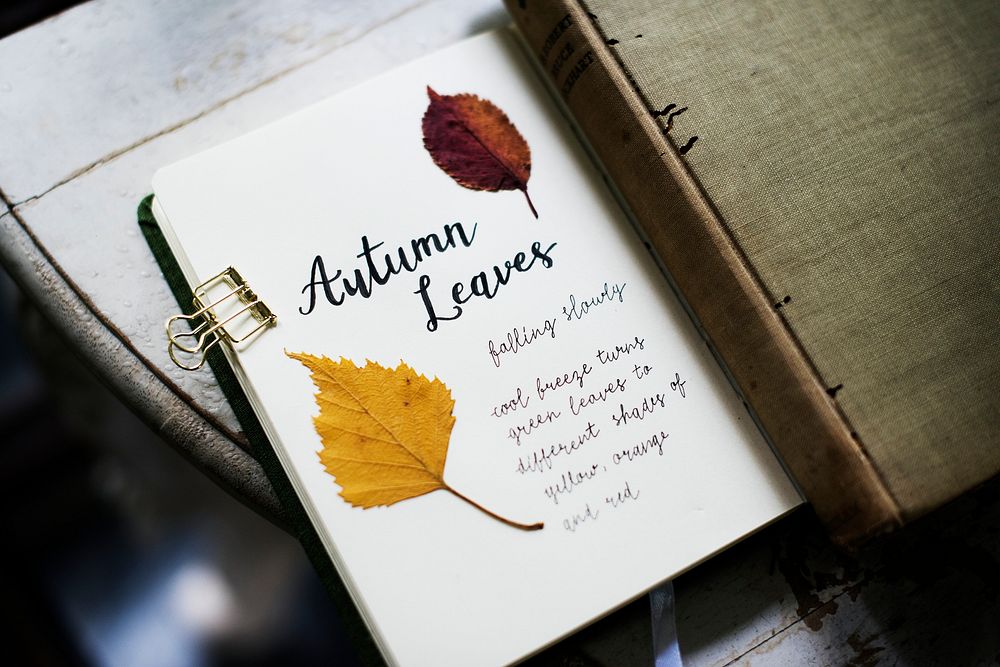 Autumn
Leaves
falling slowly
cool breeze turns
green leaves to
different shades of
yellow, orange
and red